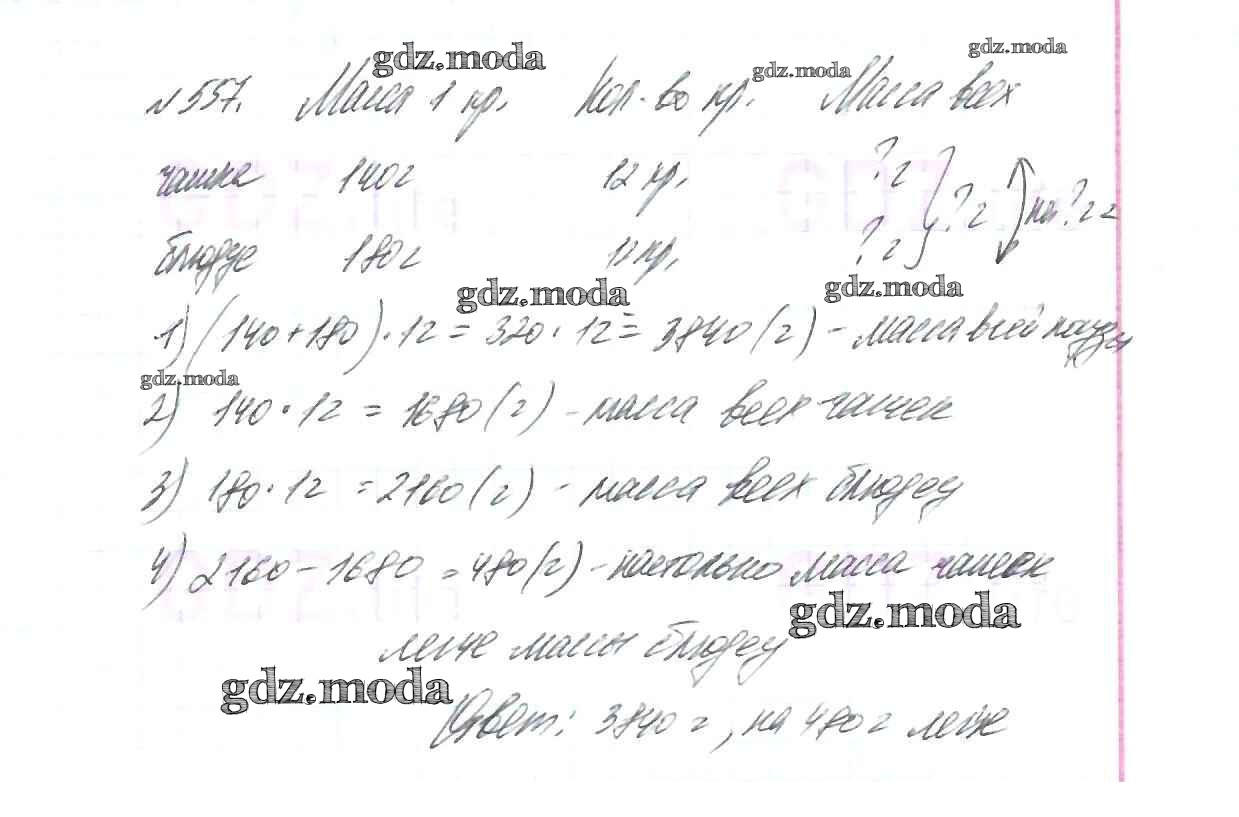 gdz.moda
gdz.moda
gdz.moda
№557. Масса 1 пр. Кол-во пр. Масса всех
чашка 140г 12 пр. ?г } ?г на ?г
блюдце 180г 12 пр. ?г
gdz.moda
gdz.moda
1) (140+180)·12 = 320·12 = 3840 (г) – масса всей посуды
gdz.moda
2) 140·12 = 1680 (г) – масса всех чашек
3) 180·12 = 2160 (г) – масса всех блюдец
4) 2160 – 1680 = 480 (г) – настолько масса чашек
gdz.moda
легче массы блюдец
gdz.moda
Ответ: 3840 г, на 480 г легче